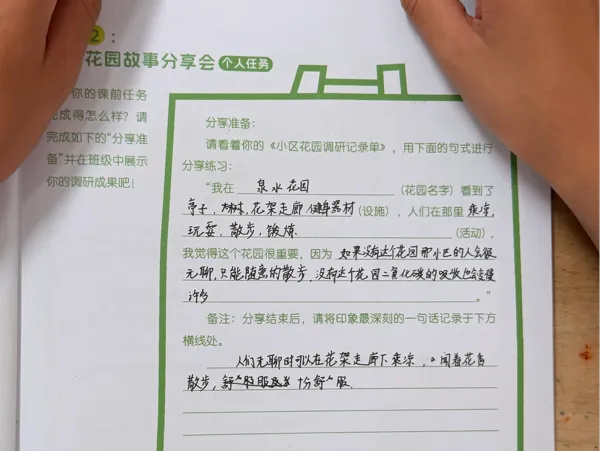 2：
花园故事分享会 个人任务
你的课前任务
完成得怎么样？请
完成如下的“分享准
备”并在班级中展示
你的调研成果吧！
分享准备：
请看着你的《小区花园调研记录单》，用下面的句式进行
分享练习：
“我在 泉水花园 （花园名字）看到了
亭子，大树，花架走廊，健身器材（设施），人们在那里乘凉，
玩耍，散步，锻炼 （活动），
我觉得这个花园很重要，因为 如果没有这个花园那小区的人会很
无聊，只能随意的散步，没有这个花园二氧化碳的吸收也会慢
许多 。”
备注：分享结束后，请将印象最深刻的一句话记录于下方
横线处。
人们无聊时可以在花架走廊下乘凉，闻着花香
散步，舒 十分舒服.